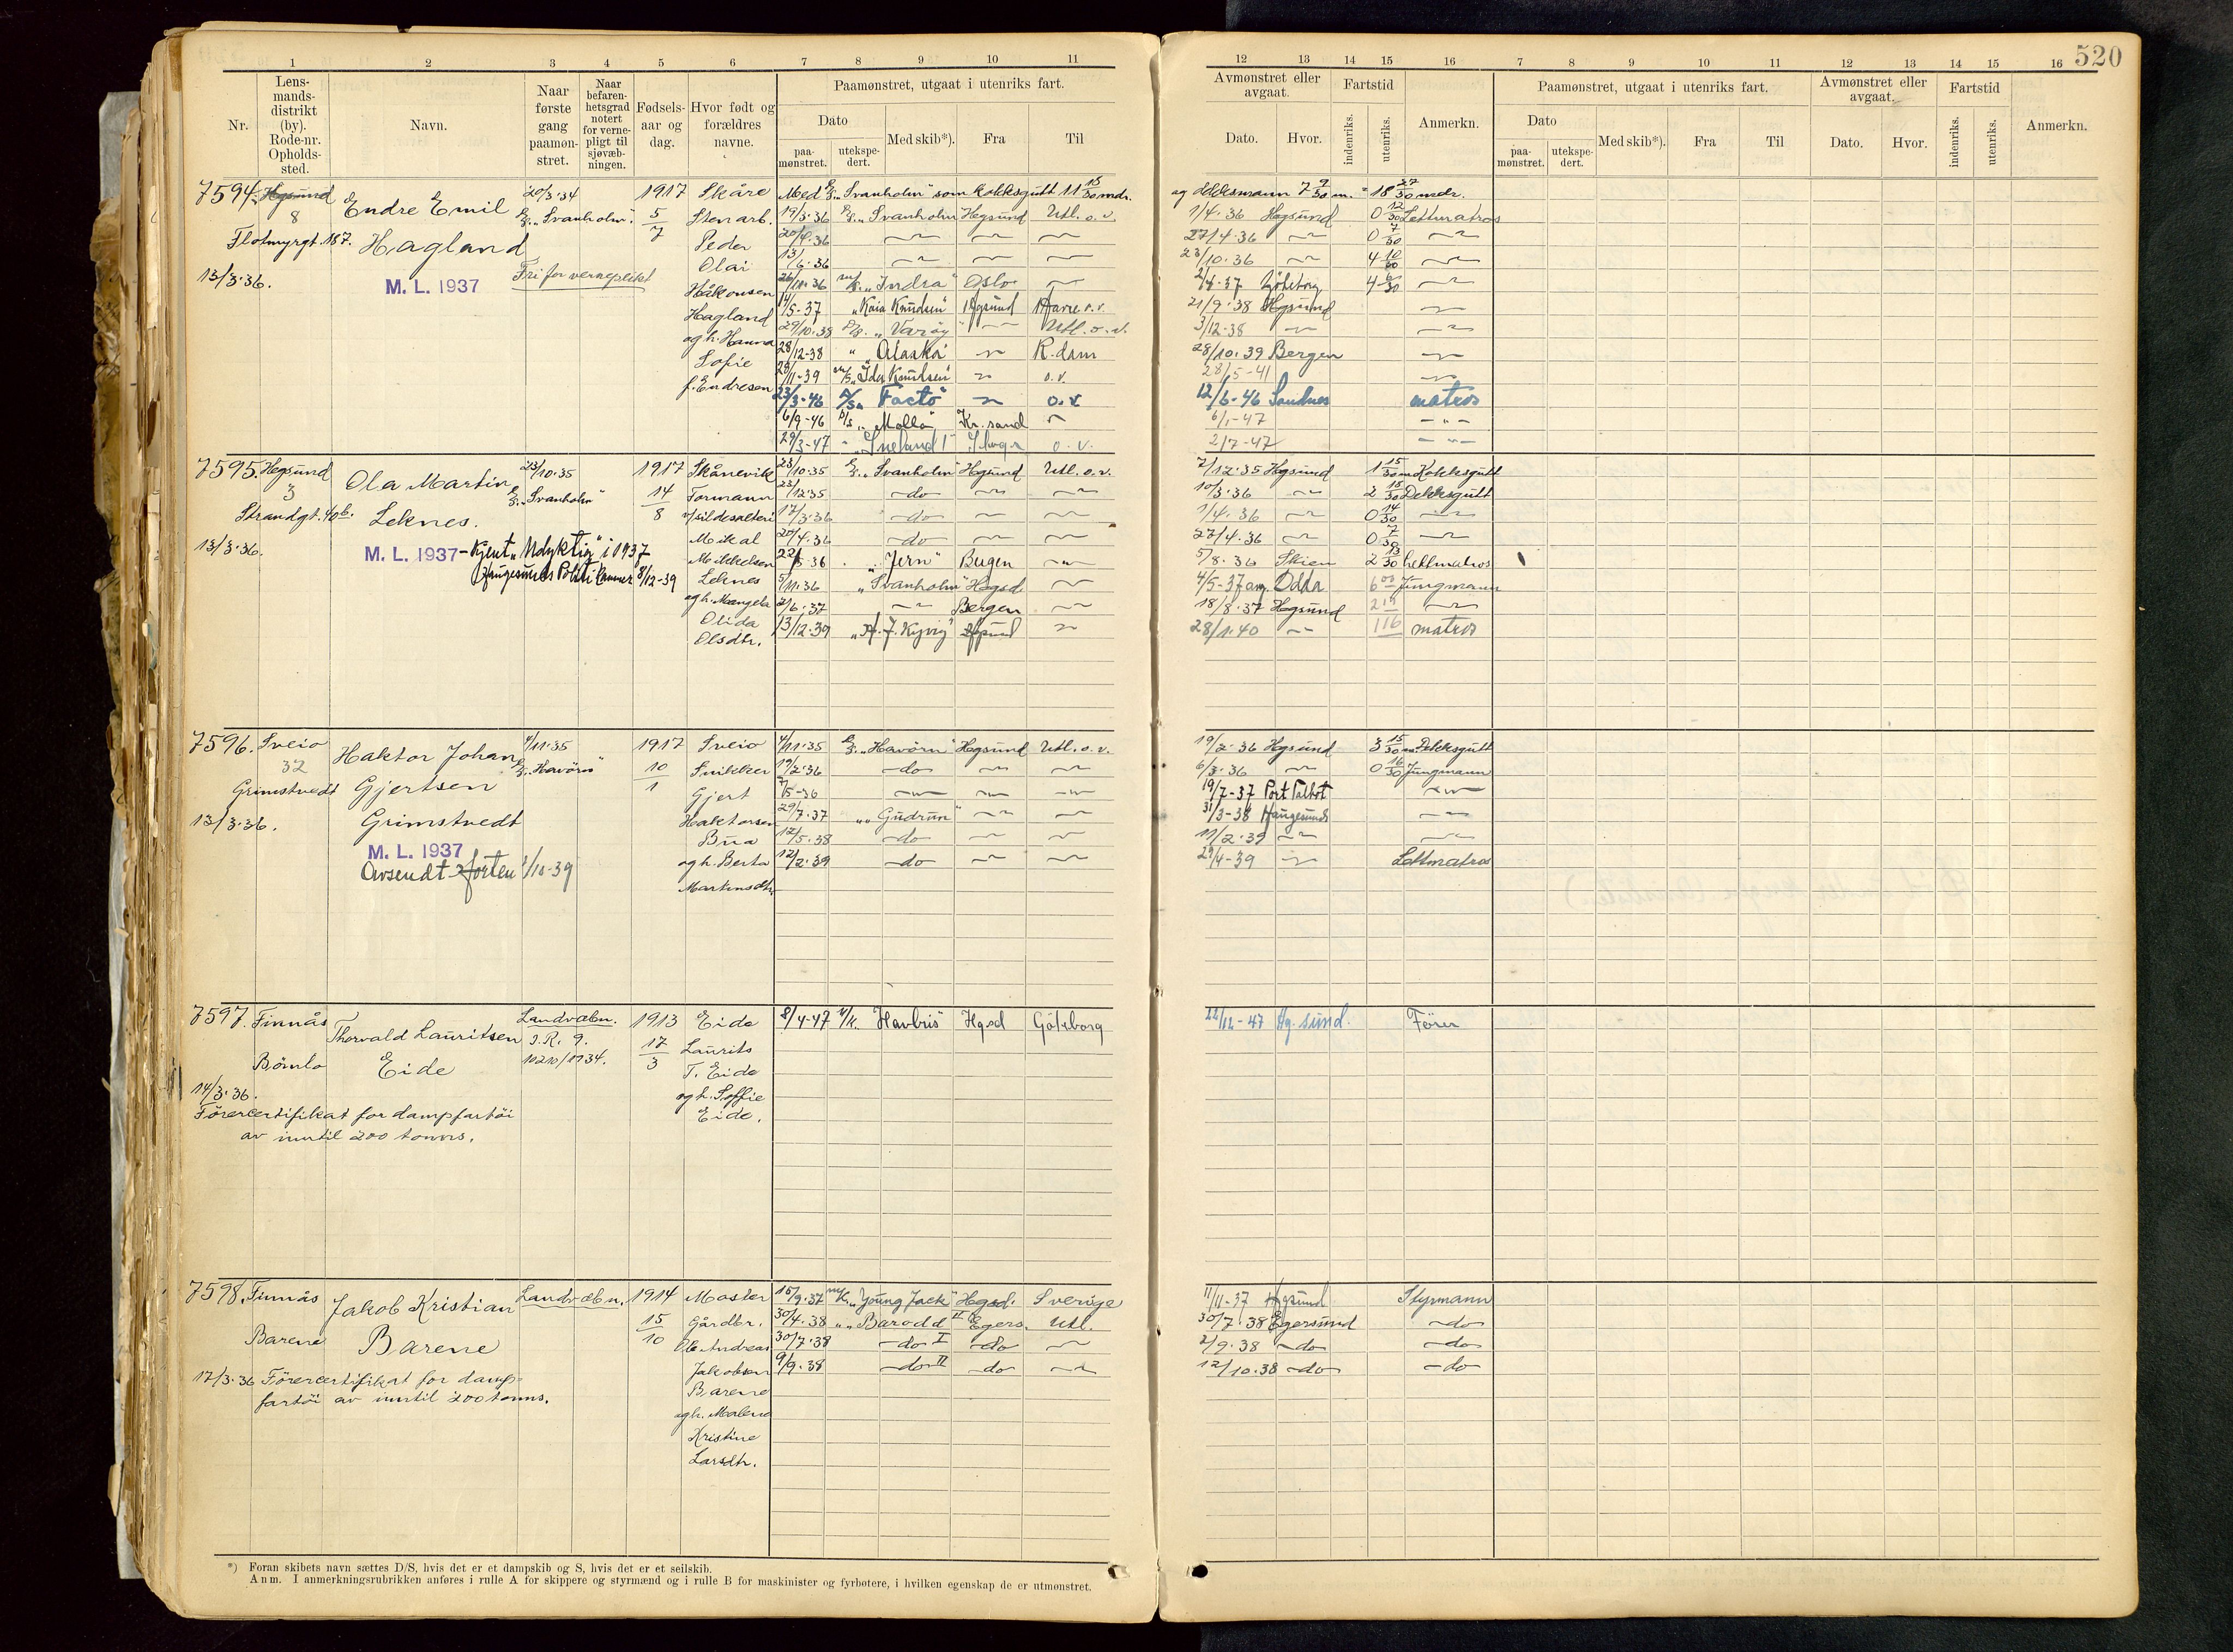 520
1 2 3 4 5 6 7 8 9 10 11
12 13 14 15 16 7 8 9 10 11 12 13 14 15 16
Nr.
Lens-
mands-
distrikt
(by).
Rode-nr.
Opholds-
sted.
Navn.
Naar
første
gang
paamøn-
stret.
Naar
befaren-
hetsgrad
notert
for verne-
pligt til
sjøvæb-
ningen.
Fødsels-
aar og
dag.
Hvor født og
forældres
navne.
Paamønstret, utgaat i utenriks fart.
Dato
paa-
mønstret.
utekspe-
dert.
Med skib*).
Fra
Til
Avmønstret eller
avgaat.
Dato.
Hvor.
Fartstid
indenriks.
utenriks.
Anmerkn.
Paamønstret, utgaat i utenriks fart.
Dato
paa-
mønstret.
utekspe-
dert.
Med skib*).
Fra
Til
Avmønstret eller
avgaat.
Dato.
Hvor.
Fartstid
indenriks.
utenriks.
Anmerkn.
7594. Hgsund
8
Flotmyrgt. 187.
13/3.36.
Endre Emil
Hagland
M. L. 1937
20/3.34
D/S. "Svanholm".
Fri for verneplikt
1917
5/7
Skåre
Sten arb.
Peder
Olai
Håkonsen
Hagland
og h. Hanna
Sofie
f. Endresen
Med D/S. "Svanholm" som kokksgutt 11 15/30 mdr. og dekksmann 7 9/30 m. = 18 27/30 mdr.
19/3.36 D/S. "Svanholm" Hgsund Utl. o. v. 1/4.36 Hgsund 0 12/30 Lettmatros
20/4.36 27/4.36 0 7/30
13/6.36 23/10.36 4 10/30
26/11.36 m/s. "Indra" Oslo 2/4.37 Göteborg 4 6/30
14/5-37 "Kaia Knudsen" Hgsund Havre o.v. 21/9.38 Hgsund
29/10.38 D/S. "Varøy" Utl. o. v. 3/12-38
28/12-38 " "Alaska" R.dam 28/10.39 Bergen
29/11-39 M/S. "Ida Knudsen" o. v. 28/5-41
23/3-46 D/S. "Facto" o.v. 12/6-46 Sandnes matros
6/9-46 D/s. "Molla" Kr. sand 6/1-47 - " -
29/3-47 " "Sneland I" o. v. 2/7-47 - " -
7595. Hgsund
3
Strandgt. 40b.
13/3.36.
Ola Martin
Leknes.
M. L. 1937 - Kjent "Udyktig" i 1937
Haugesunds Politikammer 8/12-39
23/10.35
D/S. "Svanholm"
1917
14/8
Skånevik
Formann
v/sildesalteri
Mikal
Mikkelsen
Leknes
og h. Mangela
Olida
Olsdtr.
23/10.35 D/S. "Svanholm" Hgsund Utl. o.v. 7/12.35 Hgsund 1 15/30 m Kokksgutt
23/12.35 do 10/3.36 2 18/30 Dekksgutt
17/3.36 do 1/4.36 0 14/30
20/4.36 do 27/4.36 0 7/30
22/5.36 "Jern" Bergen 5/8.36 Skien 2 13/30 Lettmatros
5/11.36 "Svanholm" Hgsd 4/5-37 am. Odda 6 00 Jungmann
2/6.37 Bergen 18/8.37 Hgsund
13/12.39 "H. J. Kyvig" Hgsund 28/1.40 matros
7596. Sveio
32
Grimstvedt
13/3.36.
Haktor Johan
Gjertsen
Grimstvedt
M. L. 1937
Avsendt Horten
4/11.35
D/S. "Havörn"
1917
10/1
Sveio
Snikker
Gjert
Haktorsen
Bua
og h. Berta
Martinsdtr.
4/11.35 D/S. "Havörn" Hgsund Utl. o. v. 19/2.36 Hgsund 3 15/30 m. Dekksgutt
19/2.36 do 6/3.36 0 16/30 Jungmann
7/5-36 19/7-37 Port Talbot
29/7.37 "" Gudrun" 31/3-38 Haugesund
12/5.38 do 11/2.39
12/2.39 do 29/4-39 Lettmatros
7597. Finnås
Bömlo
14/3.36.
Thorvald Lauritsen
Eide
Landvæbn.
I. R. 9.
10210/1934.
1913
17/3
Eide
Laurits
T. Eide
og h. Soffie
Eide.
Förercertifikat for dampfartöi
av inntil 200 tonns.
8/4-47 M/k. "Havbris" Hgsd Göteborg 22/12-47 Hg.sund. Förer
7598. Finnås
Barene
17/3.36
Jakob Kristian
Barene
Landvæbn.
1914
15/10
Moster
Gårdbr.
Ole Andreas
Jakobsen
Barene
og h. Malena
Kristine
Larsdtr.
Förercertifikat for damp-
fartöi av inntil 200 tonns.
15/9.37 m/k. "Young Jack" Hgsd. Sverige 11/11-37 Hgsund Styrmann
30/4.38 "" Barodd II" Egers. Utl. 30/7.38 Egersund do
30/7.38 do I do 2/9.38 do do
9/9.38 do II do 12/10.38 do do
*) Foran skibets navn sættes D/S, hvis det er et dampskib og S, hvis det er et seilskib.
Anm. I anmerkningsrubrikken anføres i rulle A for skippere og styrmænd og i rulle B for maskinister og fyrbøtere, i hvilken egenskap de er utmønstret.